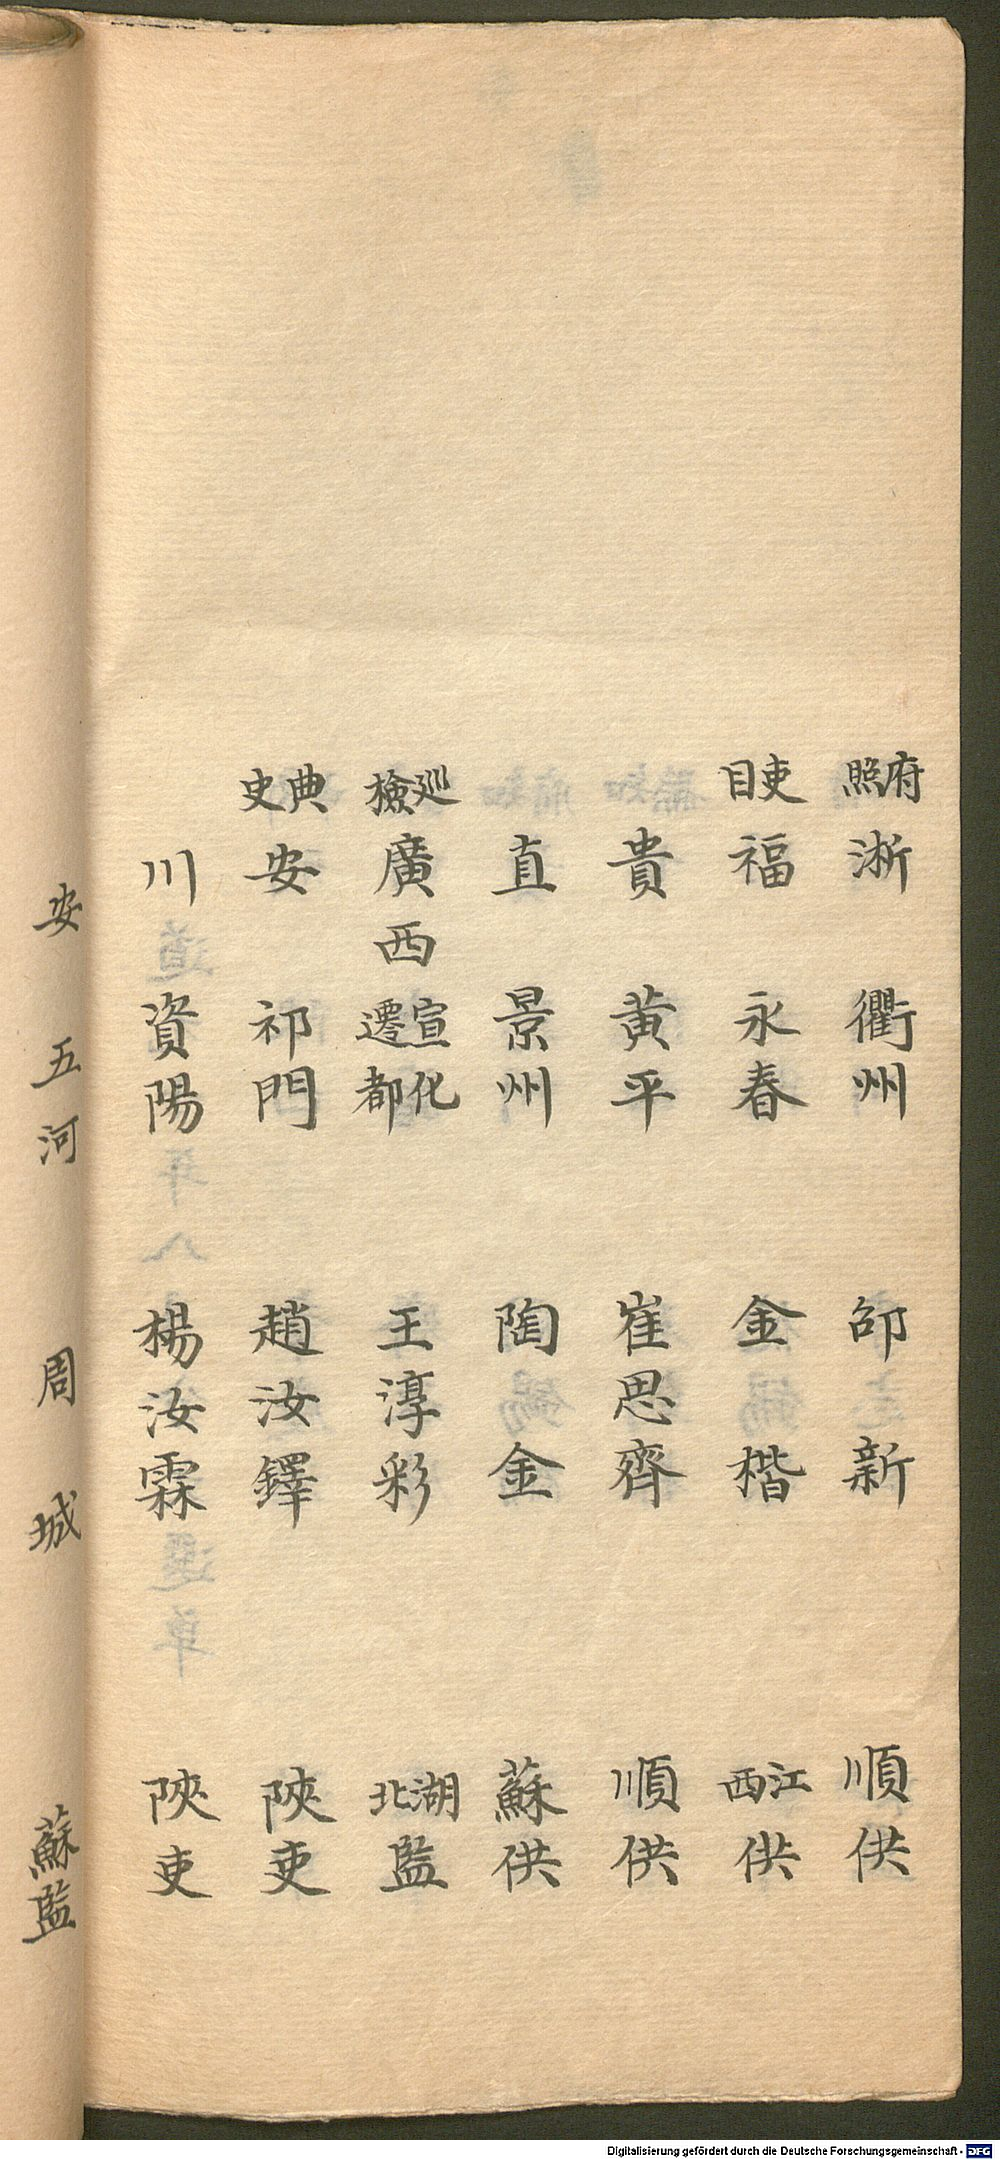 府照 浙 衢州 邵新 順供
吏目 福 永春 金楷 江西供
貴 黃平 崔思齊 順供
直 景州 陶金 蘇供
巡檢 廣西 宣化遷都 王淳彩 湖北監
典史 安 祁門 趙汝鐸 陝吏
川 資陽 楊汝霖 陝吏
安 五河 周城 蘇監
Digitalisierung gefördert durch die Deutsche Forschungsgemeinschaft - DFG